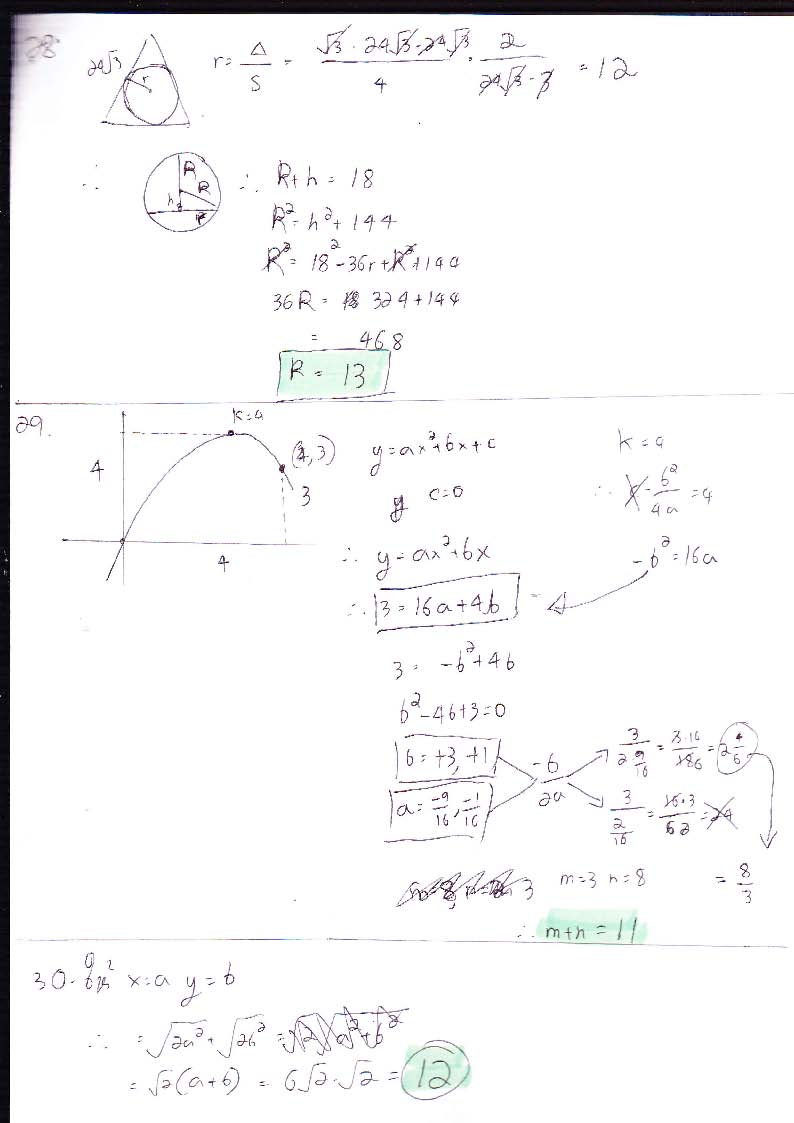 28
24√3 r r = Δ/S = √3 · 24√3 · 24√3 / 4 · 2 / 24√3 · 3 = 12
∴ R R h r ∴ R + h = 18
R² = h² + 144
R² = 18² - 36r + R² + 144
36R = 324 + 144
= 468
R = 13
29.
k=4
4
(4, 3)
3
4
y = ax² + bx + c
y c = 0
∴ y = ax² + bx
∴ 3 = 16a + 4b
3 = -b² + 4b
b² - 4b + 3 = 0
b = +3, +1
a = -9/16, -1/16
k = 4
∴ -b²/4a = 4
-b² = 16a
-b/2a
3 / 2 9/16 = 3·16/186 = 2 4/6
3 / 2/16 = 16·3/62 = 24
= 8/3
m=3 n=8
∴ m+n = 11
30. x=a y=b
∴ = √2a² + √2b² = √2 √a²+b²
= √2(a+b) = 6√2·√2 = 12